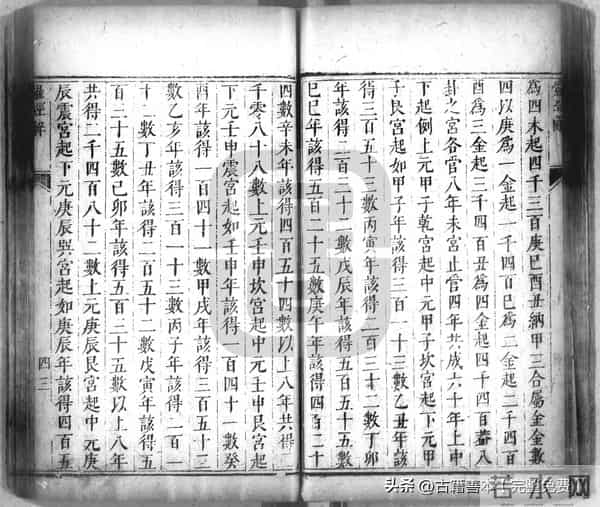 為四木起四千三百庚巳酉丑納甲三合屬金金數
四以庚為一金起一千四百巳為二金起二千四百
酉為三金起三千四百丑為四金起四千四百蓋八
卦之宮各管八年未宮止管四年共成六十年上中
下起倒上元甲子乾宮起中元甲子坎宮起下元甲
子艮宮起如甲子年該得三百一十三數乙丑年該
得三百五十三數丙寅年該得二百三十二數丁卯
年該得二百三十二數戊辰年該得五百五十五數
巳巳年該得五百二十五數庚午年該得四百二十
四數辛未年該得四百五十四數以上八年共得三
千零八十八數上元壬申坎宮起中元壬申艮宮起
下元壬申震宮起如壬申年該得一百四十一數癸
酉年該得一百四十一數甲戌年該得三百五十三
數乙亥年該得三百一十三數丙子年該得二百一
十二數丁丑年該得二百五十二數戊寅年該得五
百三十五數已卯年該得五百三十五數以上八年
共得二千四百八十二數上元庚辰艮宮起中元庚
辰震宮起下元庚辰巽宮起如庚辰年該得四百五
四三
头条 @古籍善本